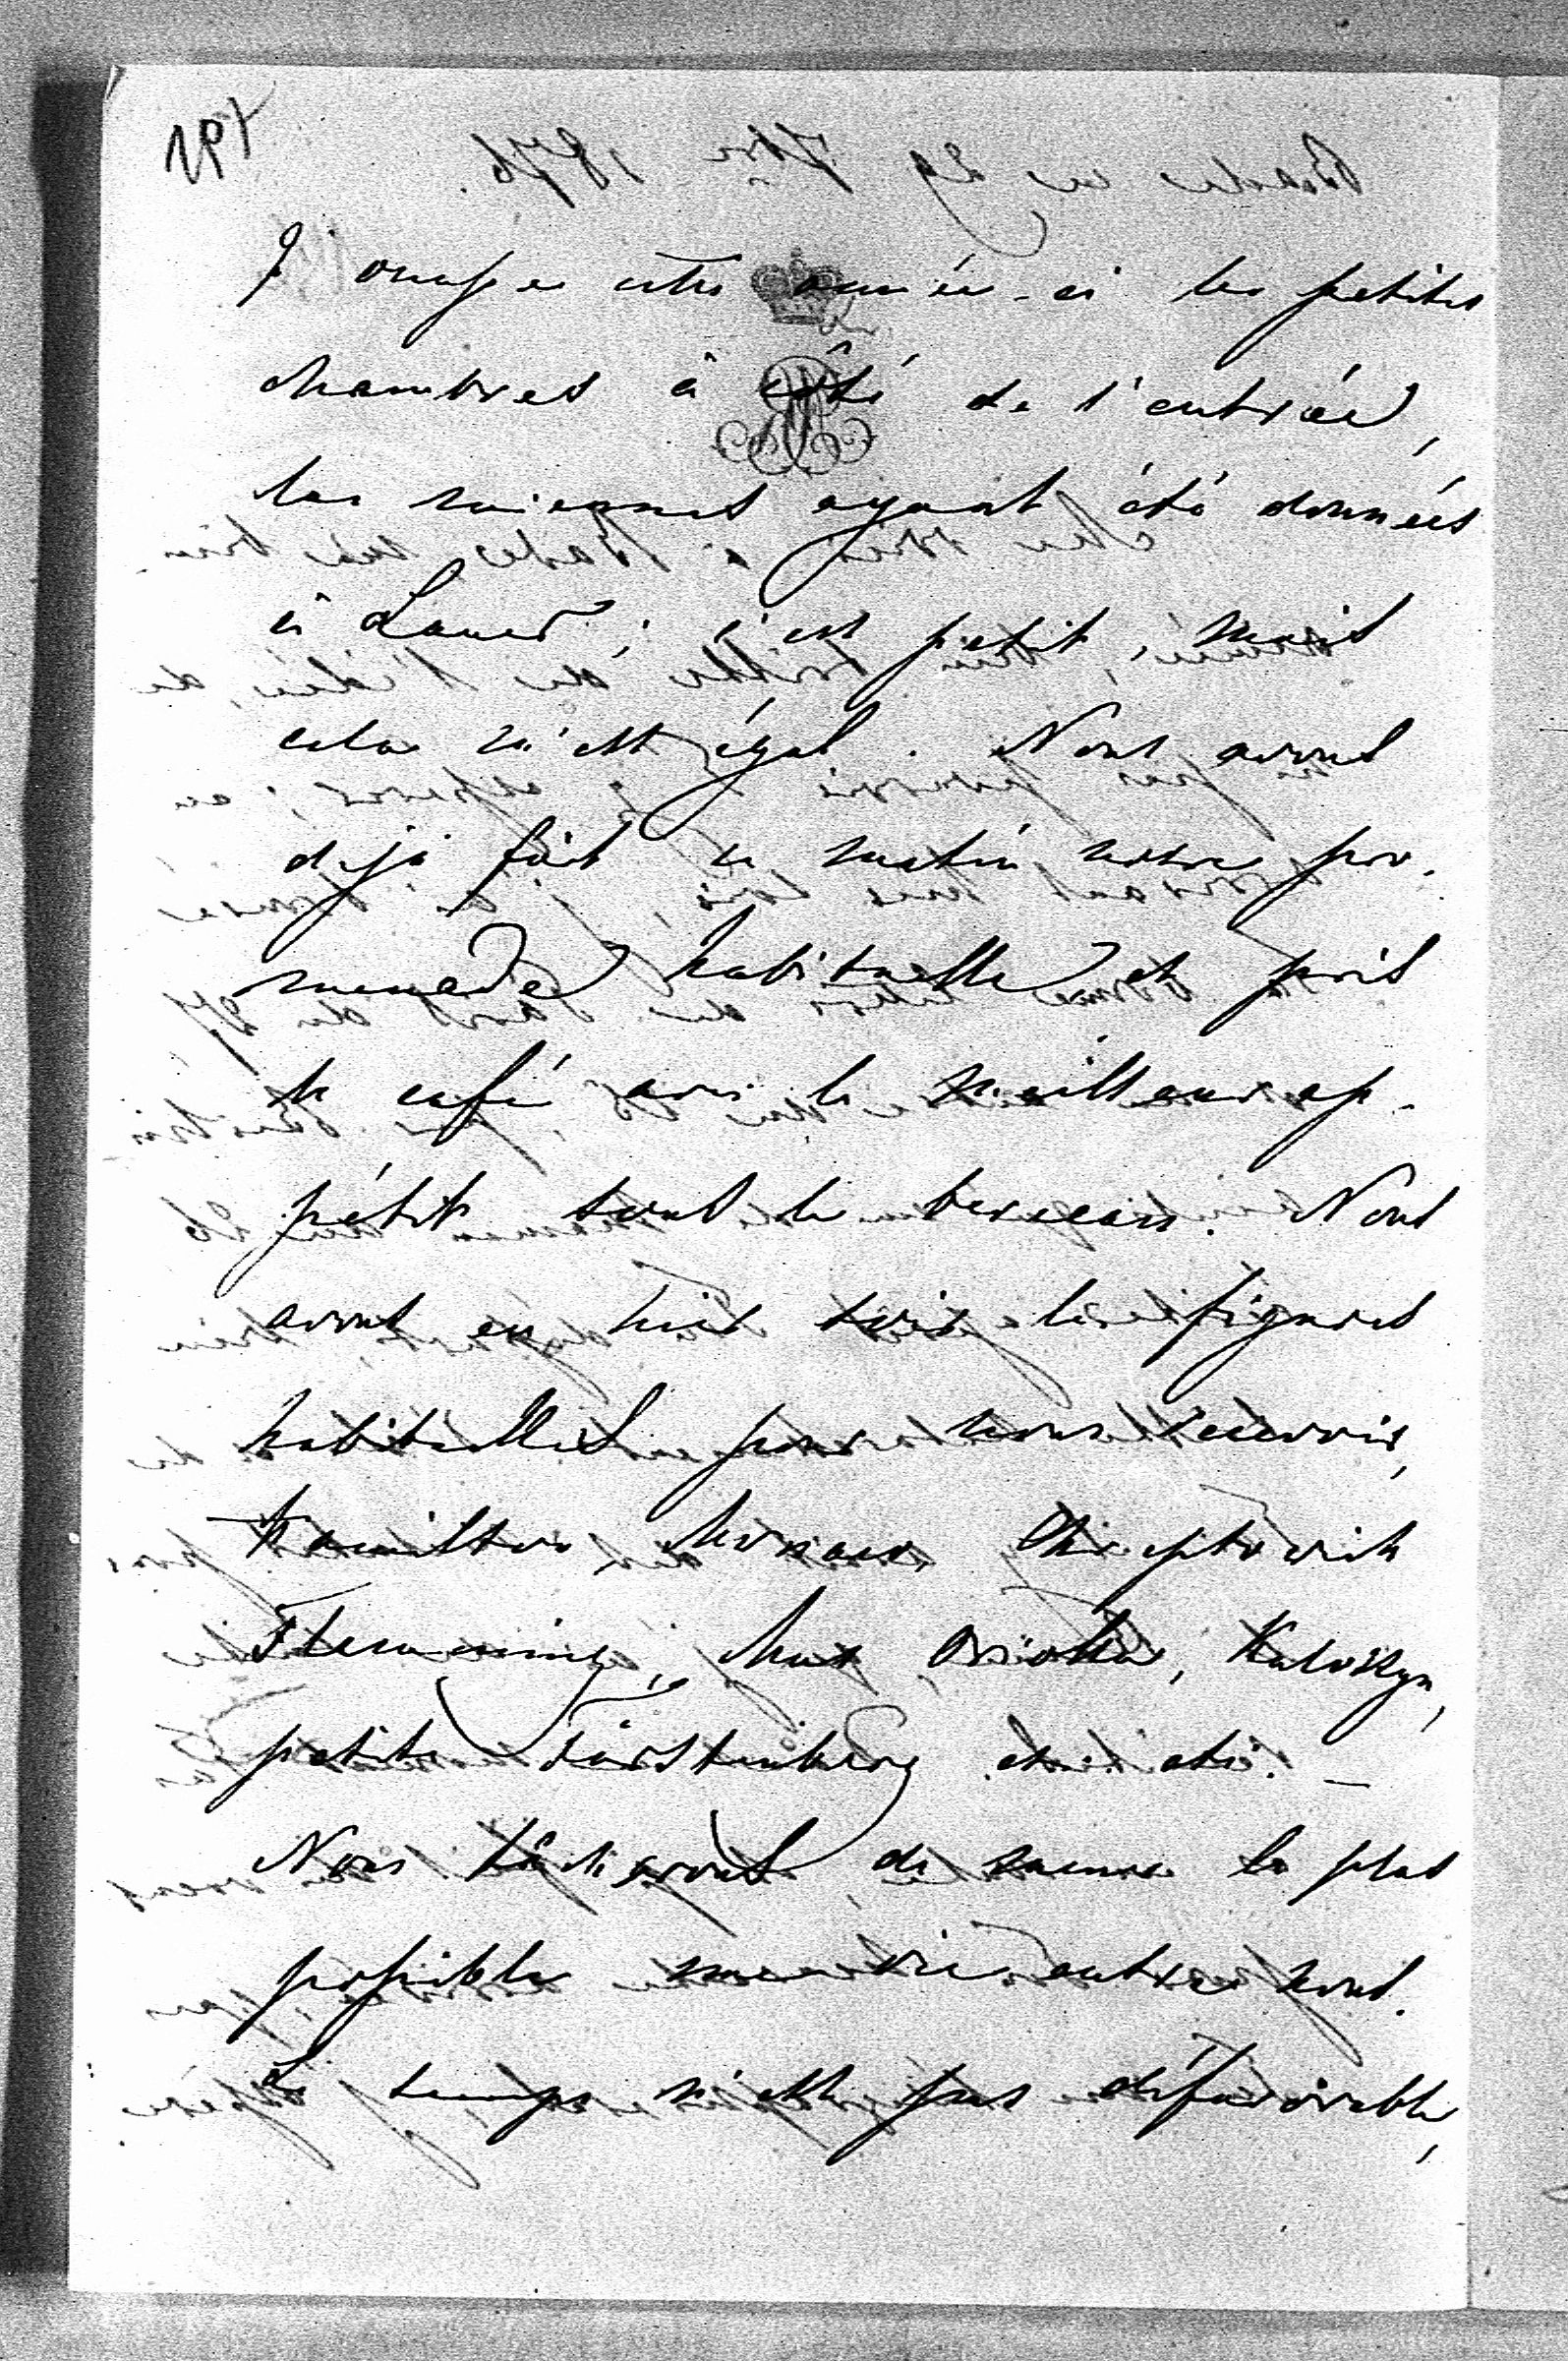 J'occupe cette année-ci les petites
chambres à côté de l'entrée,
les miennes ayant été données
à Laure ; c'est petit, mais
cela m'est égal. Nous avons
déjà fait ce matin notre pro-
menade habituelle et pris
le café avec le meilleur ap-
pétit sous le berceau. Nous
avons eu hier soir les figures
habituelles pour nous recevoir,
Hamilton
Flemming, Max,
petits Fürstenberg etc. etc. –
Nous tâcherons de mener le plus
possible une vie entre nous.
Le temps n'est pas défavorable,